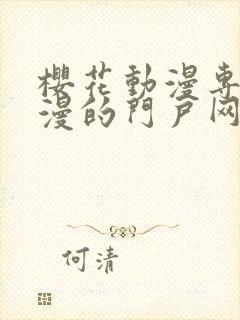 櫻花動漫專
漫的門戶网
何清